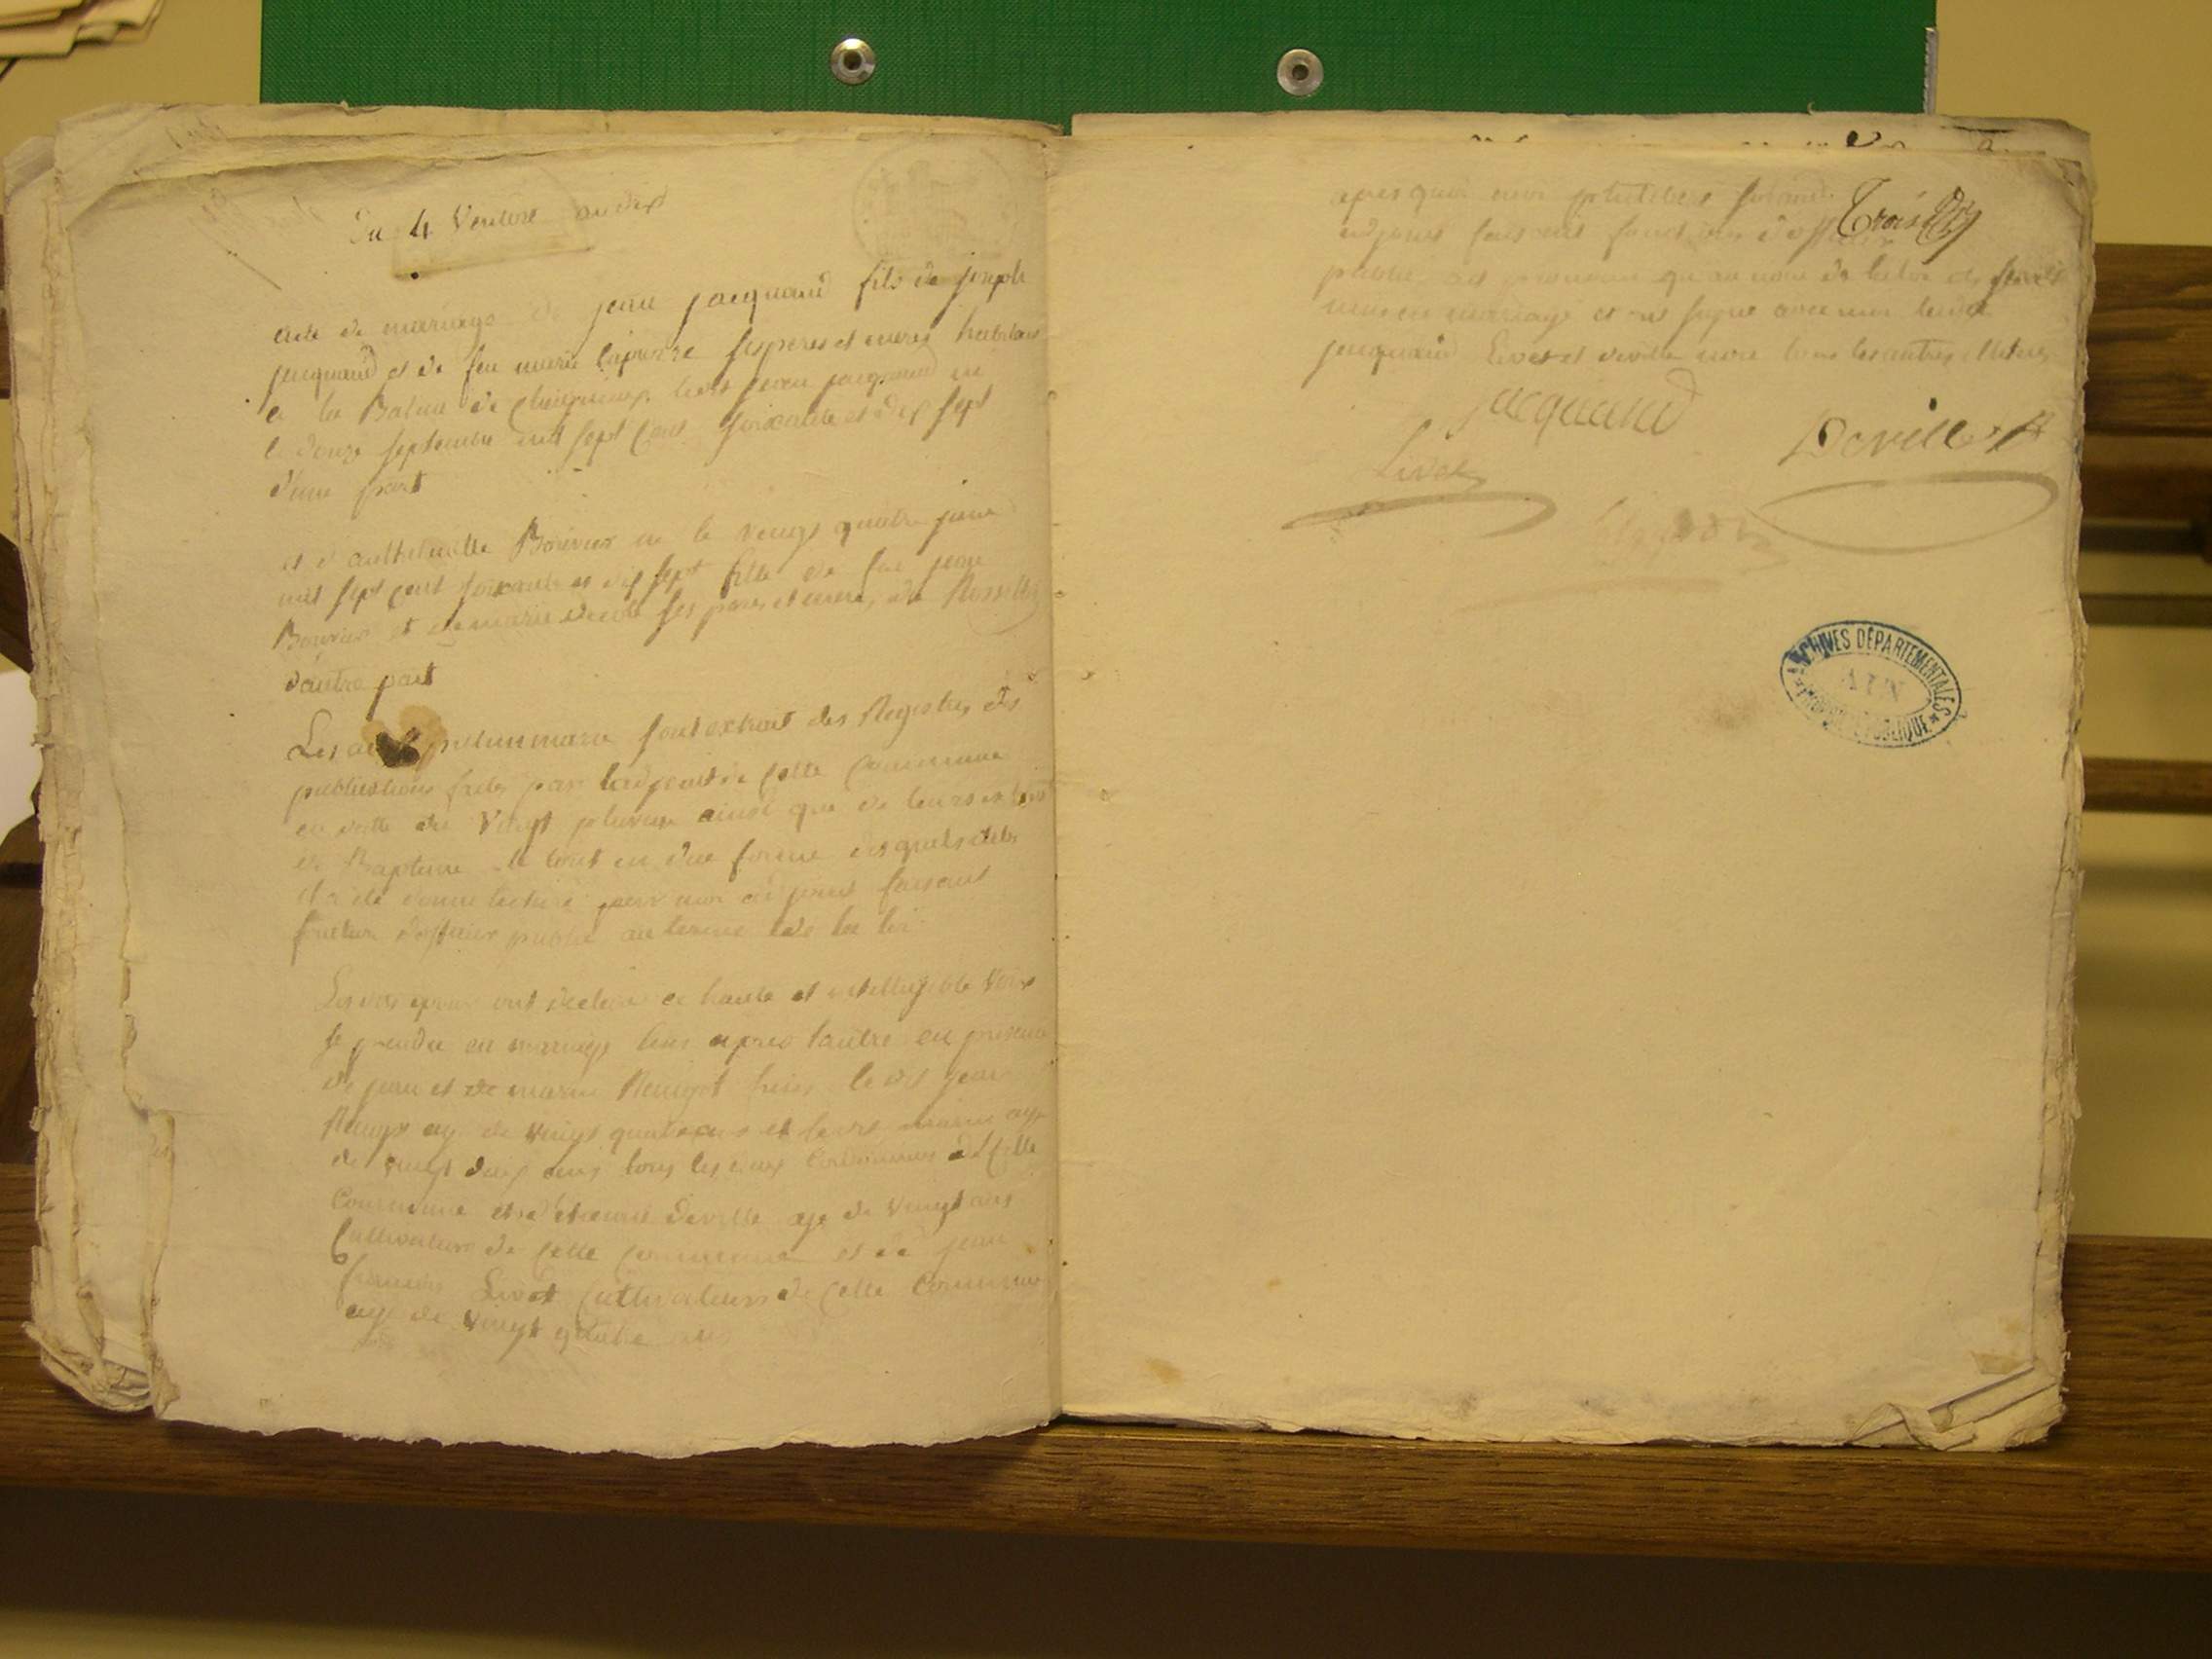 Du 4 Ventose an dix
acte de mariage de jean jacquand fils de joseph
jacquand et de feu marie lapierre ses peres et meres habitans
a la Balme de jean jacquand ne
le douze septembre mil sept cent soixante et dix sept
d'une part
et d'anthelmette Bouvier ne le vingt quatre juin
mil sept cent soixante et dix sept fille de feu jean
Bouvier et de marie ses peres et meres de Rossillon
d'autre part
Les actes preliminaire sont extrait des Registres des
publications faites par ladjoint de cette Commune
en datte du Vingt pluviose ainsi que de leurs extrait
de Bapteme le tout en due forme desquels actes
il a ete donne lecture par moi adjoint faisant
fonction d'officier public au terme de la loi
Les dits epoux ont declare a haute et intelligible Voix
se prendre en mariage lun apres lautre en presence
de jean et de marin freres le dit jean
age de vingt quatre ans et marin age
de vingt deux ans tous les deux de cette
Commune et d'etienne deville age de Vingt ans
Cultivateur de cette Commune et de jean
francois Livet Cultivateur de cette Commune
age de Vingt quatre ans
Trois
apres quoi moi
adjoint faisant fonctions d'officier
public ait prononce quau nom de la loi
unis en mariage et ont signe avec moi ledit
jacquand Livet et deville non tous les autres
jacquand
Livet
Deville
ARCHIVES DÉPARTEMENTALES
AIN